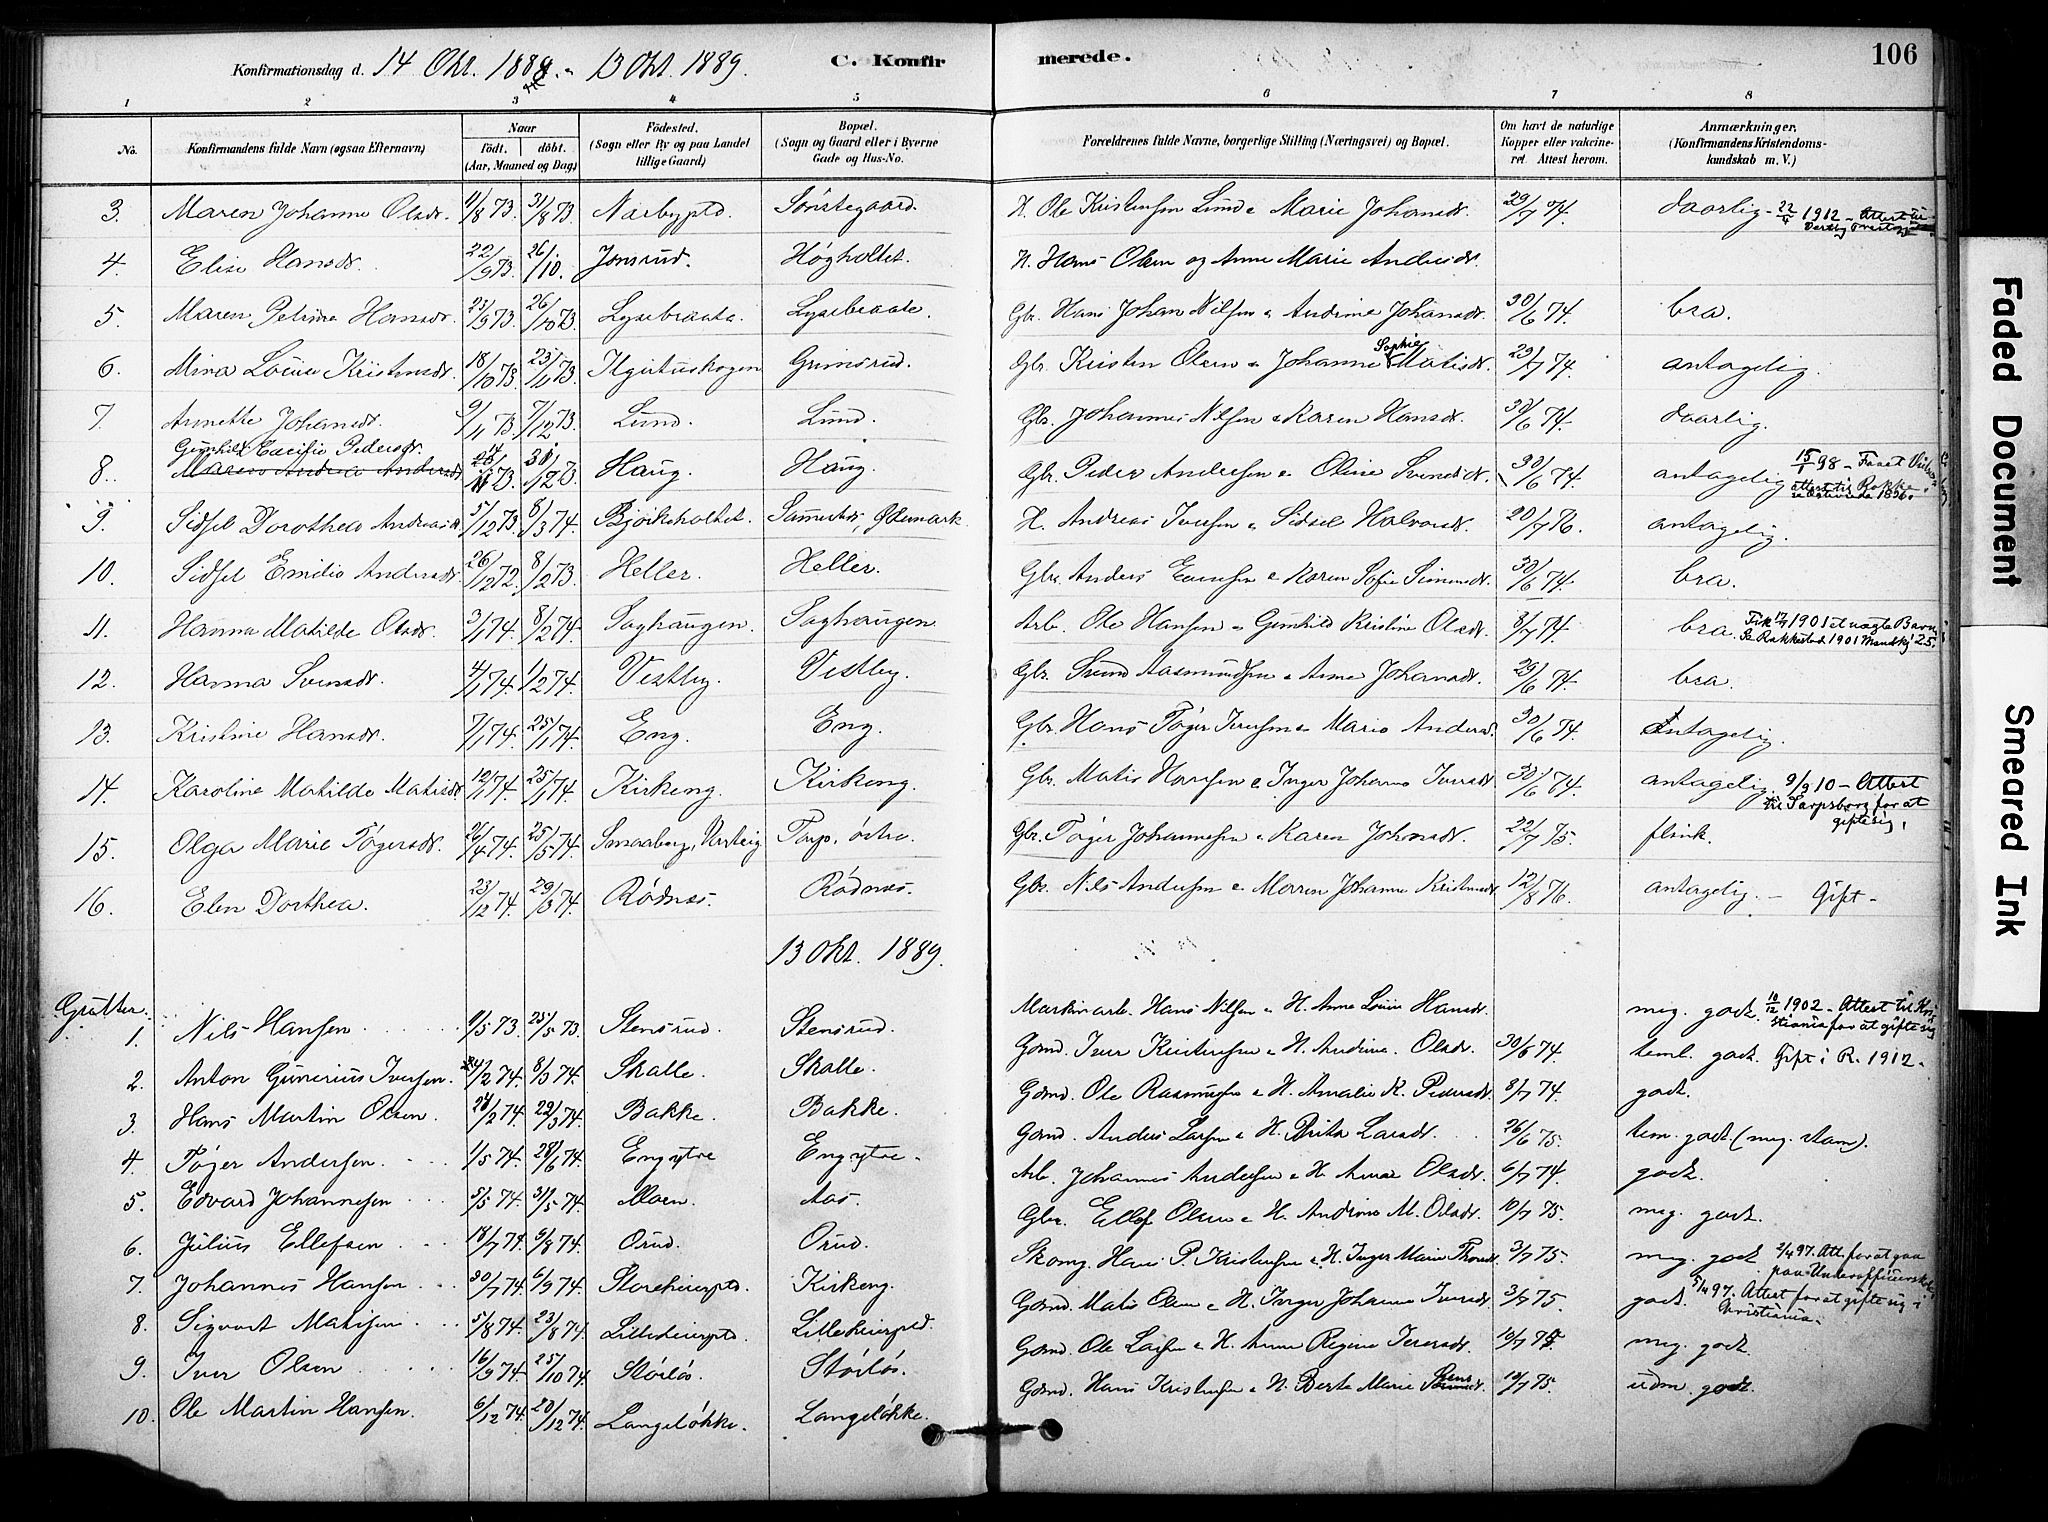 Konfirmationsdag d. 14 Okt. 1888 - 13 Okt. 1889. C. Konfirmerede. 106
1 2 3 4 5 6 7 8
No. Konfirmandens fulde Navn (ogsaa Efternavn) Naar født. døbt. (Aar, Maaned og Dag) Fødested. (Sogn eller By og paa Landet tillige Gaard) Bopæl. (Sogn og Gaard eller i Byerne Gade og Hus-No. Forældrenes fulde Navne, borgerlige Stilling (Næringsvei) og Bopæl. Om havt de naturlige Kopper eller vakcineret. Attest herom. Anmærkninger. (Konfirmandens Kristendomskundskab m. V.)
3. Maren Johanne Olsdr. 11/8 73. 31/8 73. Narbypld. Sønstegaard. H. Ole Kristensen Lund & Marie Johansdr. 29/7 74. daarlig - 22/4 1912 - Attest
4. Elise Hansdr. 22/9 73. 26/10. Jonsrud. Høgholtet. H. Hans Olsen og Anne Marie Andersdr.
5. Maren Petrine Hansdr. 23/9 73. 26/10 73. Lysebraate. Lysebraate. Gbr. Hans Johan Nilsen & Andrine Johansdr. 30/6 74. bra.
6. Mina Lovise Kristensdr. 18/10 73. 23/11 73. Grimsrud. Gbr. Kristen Olsen & Johanne Sophie Matisdr. 29/7 74. antagelig.
7. Annette Johansdr. 9/11 73. 7/12 73. Lund. Lund. Gbr. Johannes Nilsen & Karen Hansdr. 30/6 74. daarlig.
8. Gunhild Cecilie Pedersdr. Maren Andrea Andersdr. 73. 31/12 73. Haug. Haug. Gbr. Peder Andersen & Oline Svensdr. 30/6 74. antagelig 15/1 98 - attest til Rakke-
9. Sidsel Dorothea Andreasdr. 5/12 73. 8/3 74. Bjørkholtet. Ødemark. H. Andreas Iversen & Sidsel Halvorsdr. 20/7 76. antagelig.
10. Sidsel Emilie Andersdr. 26/12 72. 8/2 73. Heller. Heller. Gbr. Anders Evensen & Karen Sofie Simensdr. 30/6 74. bra.
11. Hanna Matilde Olsdr. 3/1 74. 8/2 74. Saghaugen. Saghaugen. Arb. Ole Hansen & Gunhild Kristine Olsdr. 8/7 74. bra. Fik 17/7 1901 et uægte Barn, Se Rakkestad 1901 Mandkj. 25.
12. Hanna Svensdr. 4/1 74. 1/2 74. Vestby. Vestby. Gbr. Svend Aasmundsen & Anne Johansdr. 29/6 74. bra.
13. Kristine Hansdr. 7/1 74. 25/1 74. Eng. Eng. Gbr. Hans Tøger Iversen & Marie Andersd. 30/6 74. Antagelig.
14. Karoline Matilde Matisdr. 12/1 74. 25/1 74. Kirkeng. Kirkeng. Gbr. Matis Hansen & Inger Johanne Iversdr. 30/6 74. antagelig. 9/9 10 - Attest til Sarpsborg for at gifte sig.
15. Olga Marie Tøgersdr. 24/4 74. 25/5 74. Smaaberg, Varteig Torp, østre. Gbr. Tøger Johannesen & Karen Johansdr. 22/7 75. flink.
16. Elen Dorthea. 23/12 74. 29/3 74. Rødnæs. Rødnæs. Gbr. Nils Andersen & Maren Johanne Kristensdr. 12/8 76. antagelig. - Gift -
13 Okt. 1889.
Gutter.
1. Nils Hansen 9/5 73. 25/5 73. Stensrud. Stensrud. Martin arb. Hans Nilsen & H. Anne Lovise Hansdr. meg. godt. 10/12 1902 - Attest til Kristiania for at gifte sig
2. Anton Gunerius Iversen. 24/2 74. 8/3 74. Skalle. Skalle. Gdmd. Iver Kristensen & H. Andrine Olsdr. 30/6 74. teml. godt. Gift i R. 1912.
3. Hans Martin Olsen. 28/2 74. 22/3 74. Bakke. Bakke. Gdmd. Ole Rasmussen & H. Amalie K. Pedersdr. 8/7 74. godt.
4. Tøger Andersen. 1/5 74. 28/6 74. Eng ytre Eng ytre. Gdmd. Anders Larsen & H. Brita Larsdr. 26/6 75. tem. godt. (meg. stam).
5. Edvard Johannesen 5/5 74. 31/5 74. Moen. Aas. Arb. Johannes Andersen & H. Anne Olsdr. 6/7 74. godt.
6. Julius Ellefsen 18/7 74. 9/8 74. Orud. Orud. Gbr. Ellef Olsen & H. Andrine M. Olsdr. 10/7 75. meg. godt.
7. Johannes Hansen 30/7 74. 6/9 74. Storeheierpld. Kirkeng. Skomg. Hans P. Kristensen & H. Inger Marie Thoresdr. 3/7 75. meg. godt 2/4 97. Att. for at gaa paa Underofficerskole,
8. Sigvart Matisen 5/8 74. 23/8 74. Lilleheierpld. Lilleheierpld. Gdmd. Matis Olsen & H. Inger Johanne Iversdr. 3/7 75. godt. 5/4 97. Attest for at gifte sig i Christiania.
9. Iver Olsen 16/9 74. 25/10 74. Støtløs. Støtløs. Gdmd. Ole Larsen & H. Anne Regine Iversdr. 10/7 75. meg. godt.
10. Ole Martin Hansen. 6/12 74. 20/12 74. Langeløkke. Langeløkke. Gdmd. Hans Kristensen & H. Berte Marie 10/7 75. udm. godt.
Faded Document
Smeared Ink